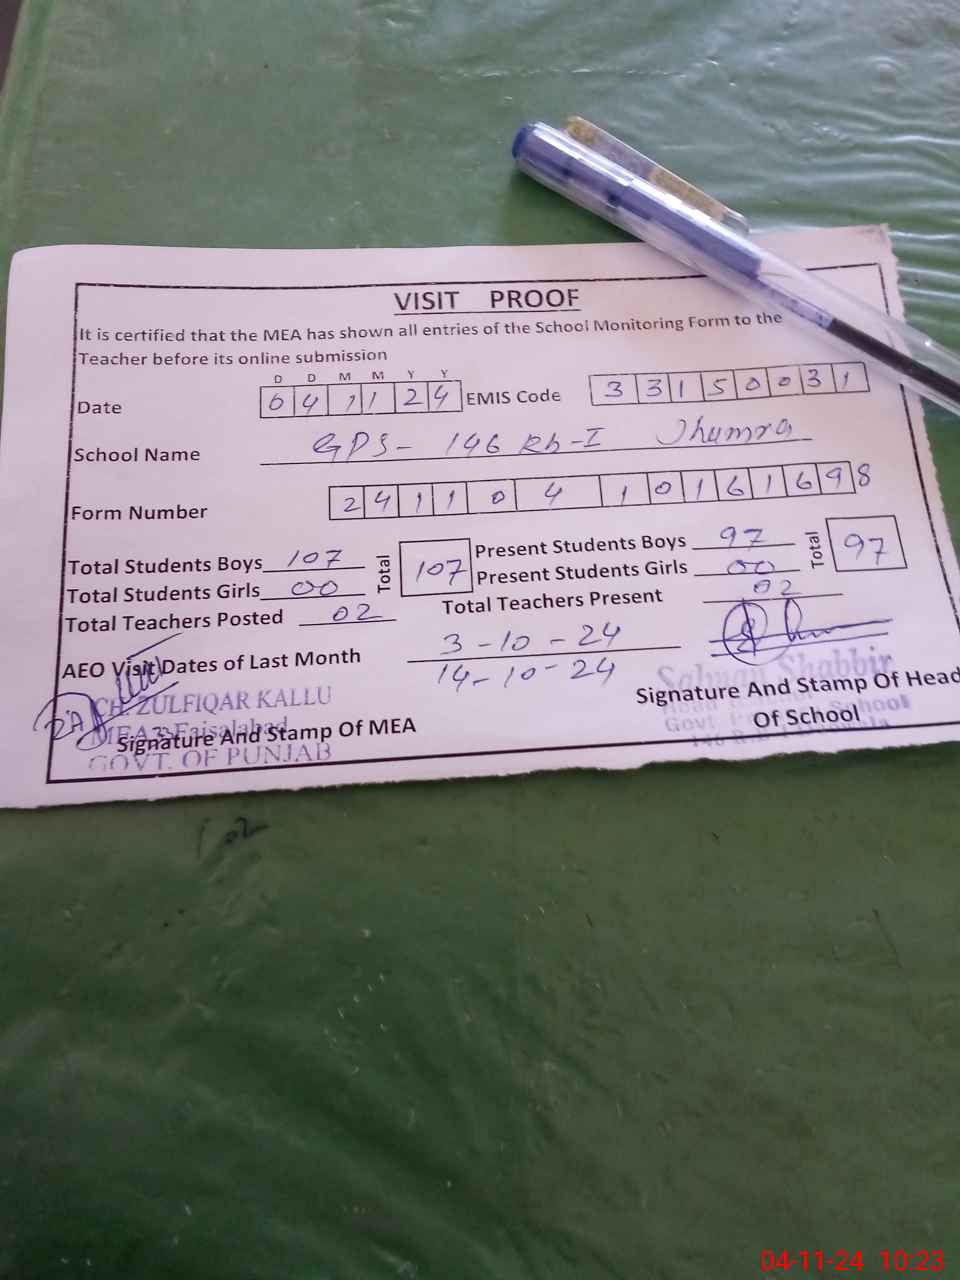 VISIT PROOF
It is certified that the MEA has shown all entries of the School Monitoring Form to the
Teacher before its online submission
D D M M Y Y
Date 04 11 24 EMIS Code 33150031
School Name GPS- 146 Rb-I Jhumra
Form Number 24110410161698
Total Students Boys 107 Total 107 Present Students Boys 97 Total 97
Total Students Girls 00 Present Students Girls 00
Total Teachers Posted 02 Total Teachers Present 02
AEO Visit Dates of Last Month 3-10-24
14-10-24
CH. ZULFIQAR KALLU
MEA Faisalabad
GOVT. OF PUNJAB
Signature And Stamp Of MEA
Salman Shabbir
Head
Govt School
Signature And Stamp Of Head
Of School
04-11-24 10:23